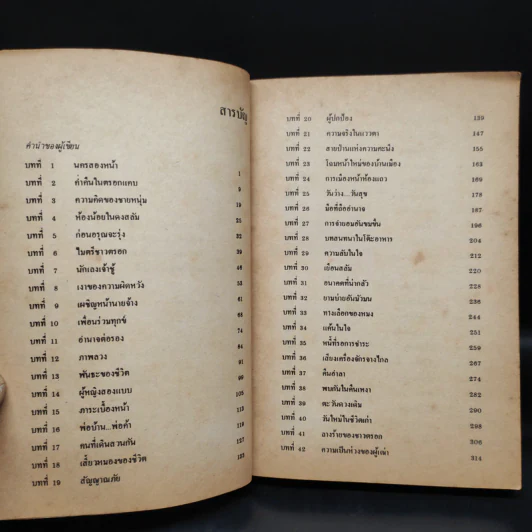 สารบัญ
คำนำของผู้เขียน
บทที่ 1 นครสองหน้า 1
บทที่ 2 ค่ำคืนในตรอกแคบ
บทที่ 3 ความคิดของชายหนุ่ม
บทที่ 4 ห้องน้อยในดงสลัม
บทที่ 5 ก่อนอรุณจะรุ่ง
บทที่ 6 ไมตรีชาวตรอก
บทที่ 7 นักเลงเจ้าชู้
บทที่ 8 เงาของความผิดหวัง
บทที่ 9 เผชิญหน้านายจ้าง
บทที่ 10 เพื่อนร่วมทุกข์
บทที่ 11 อำนาจต่อรอง
บทที่ 12 ภาพลวง
บทที่ 13 พันธะของชีวิต
บทที่ 14 ผู้หญิงสองแบบ
บทที่ 15 ภาระเบื้องหน้า
บทที่ 16 พ่อบ้าน...พ่อค้า
บทที่ 17 คนที่เดินสวนกัน
บทที่ 18 เสี้ยวหนองของชีวิต
บทที่ 19 สัญญาณภัย
บทที่ 20 ผู้ปกป้อง 139
บทที่ 21 ความจริงในแววตา 147
บทที่ 22 สายป่านแห่งความคะนึง 155
บทที่ 23 โฉมหน้าใหม่ของบ้านเมือง 163
บทที่ 24 การเมืองหน้าห้องแถว 169
บทที่ 25 วันว่าง...วันสุข 178
บทที่ 26 มือที่ถืออำนาจ 187
บทที่ 27 การจำยอมอันขมขื่น 196
บทที่ 28 บทสนทนาในโต๊ะอาหาร 204
บทที่ 29 ความลับในใจ 212
บทที่ 30 เยือนสลัม 220
บทที่ 31 อนาคตที่น่ากลัว 228
บทที่ 32 ยามบ่ายอันมัวมน 236
บทที่ 33 ทางเลือกของหมง 244
บทที่ 34 แค้นในใจ 251
บทที่ 35 หนี้ที่รอการชำระ 259
บทที่ 36 เสียงเครื่องจักรจางไกล 267
บทที่ 37 คืนอำลา 274
บทที่ 38 พบกันในคืนเหงา 282
บทที่ 39 ตะวันดวงเดิม 290
บทที่ 40 วันใหม่ในชีวิตเก่า 298
บทที่ 41 ลางร้ายของชาวตรอก 306
บทที่ 42 ความเป็นห่วงของผู้เฒ่า 314